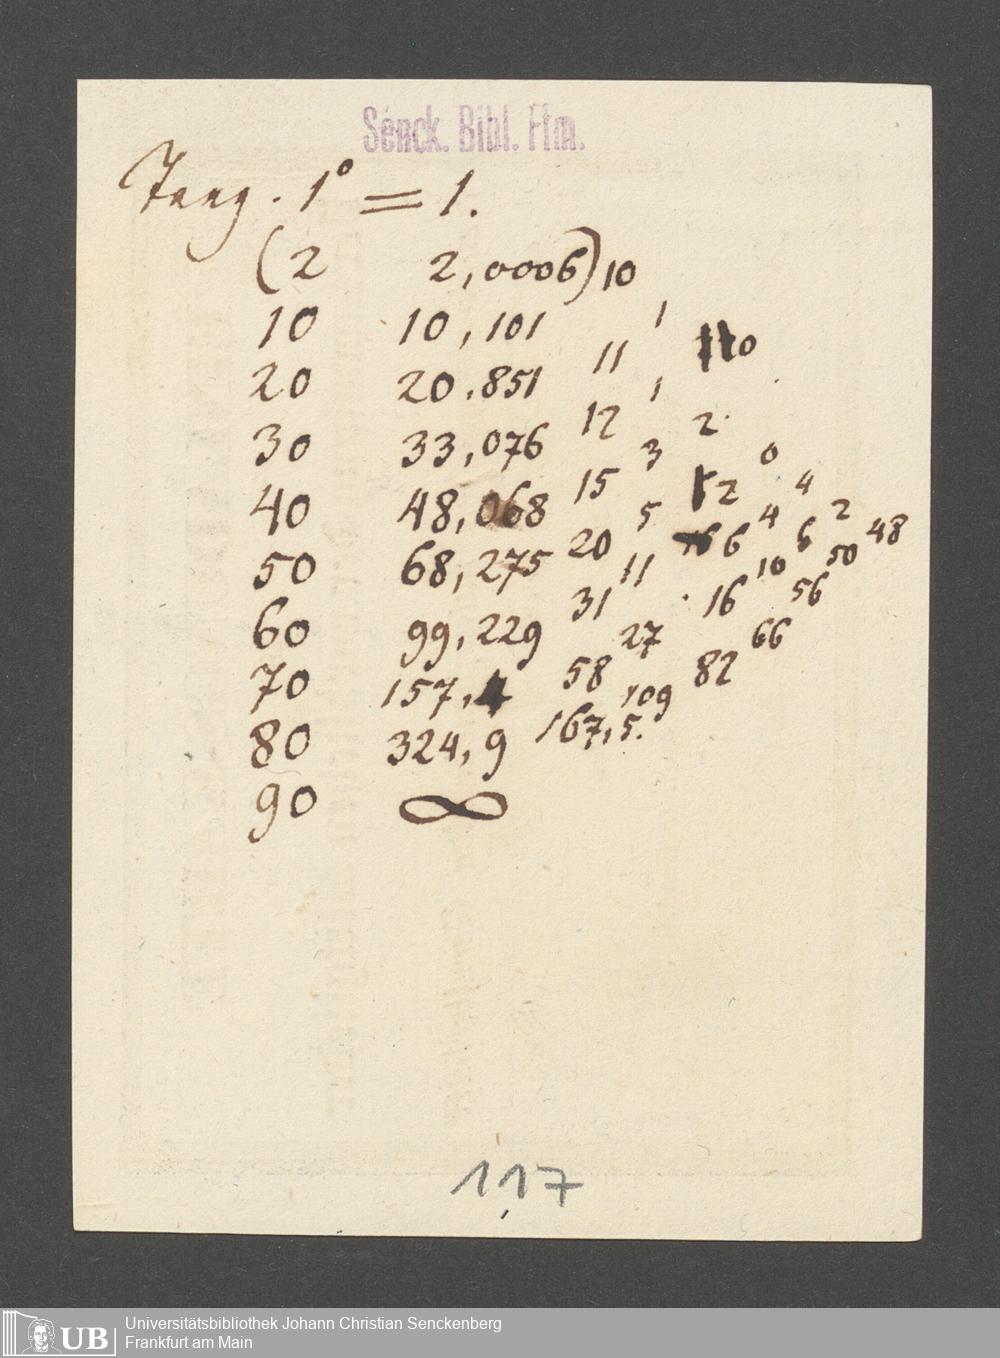 Senck. Bibl. Ffm.
Tang. 1° = 1.
(2 2,0006) 10
10 10,101 1
20 20.851 11 0
1
30 33,076 12 2
3 0
40 48,068 15 2 4
5 4 2
50 68,275 20 6 6 48
11 10 50
60 99,229 31 16 56
27 66
70 157,4 58 82
109
80 324,9 167,5.
90 ∞
117
UB Universitätsbibliothek Johann Christian Senckenberg
Frankfurt am Main